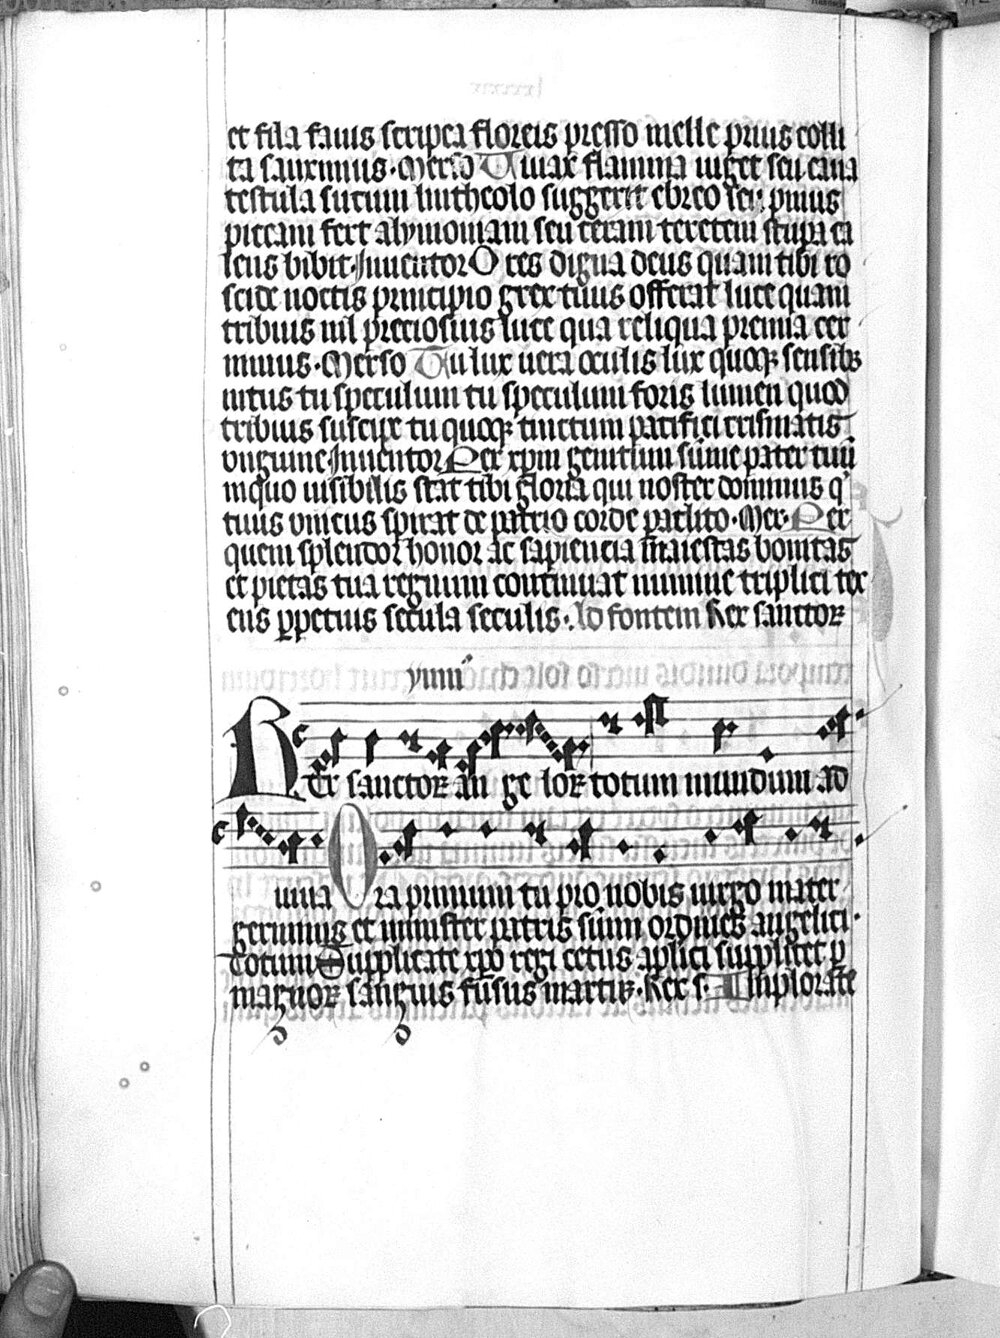 et fila fauis scirpea floreis presso melle prius colli
ta sauximus. Merso Uiuax flamma uiget seu caua
testula sucum lintheolo suggerit ebreo seu pinus
piceam fert alymoniam seu ceram teretem stupa ca
lens bibit. Inuentor O res digna deus quam tibi ro
scide noctis principio grex tuus offerat luce quam
tribuis nil preciosius luce qua reliqua premia cer
nimus. Merso Tu lux uera oculis lux quoqꝫ sensibꝫ
intus tu speculum tu speculum foris lumen quod
tribuis suscipe tu quoqꝫ tinctum pacifici crismatis
unguine Inuentor Per xp̄m genitum sūme pater tuū
inquo uisibilis stat tibi gloria qui noster dominus q̄
tuus unicus spirat de patrio corde paclito. Mer. Per
quem splendor honor ac sapiencia maiestas bonitas
et pietas tua regnum continuat numine triplici tex
ens ꝑpetius secula seculis. Ad fontem Rex sanctoꝝ
ymnꝰ
Rex sanctoꝝ an ge loꝝ totum mundum ad
iuua Ora primum tu pro nobis uirgo mater
germinis et minister patris sūmi ordines angelici.
totum Supplicate xp̄o regi cetus apl̄ici supplicet ꝑ
magnoꝝ sanguis fusus martiꝝ. Rex s. Implorate